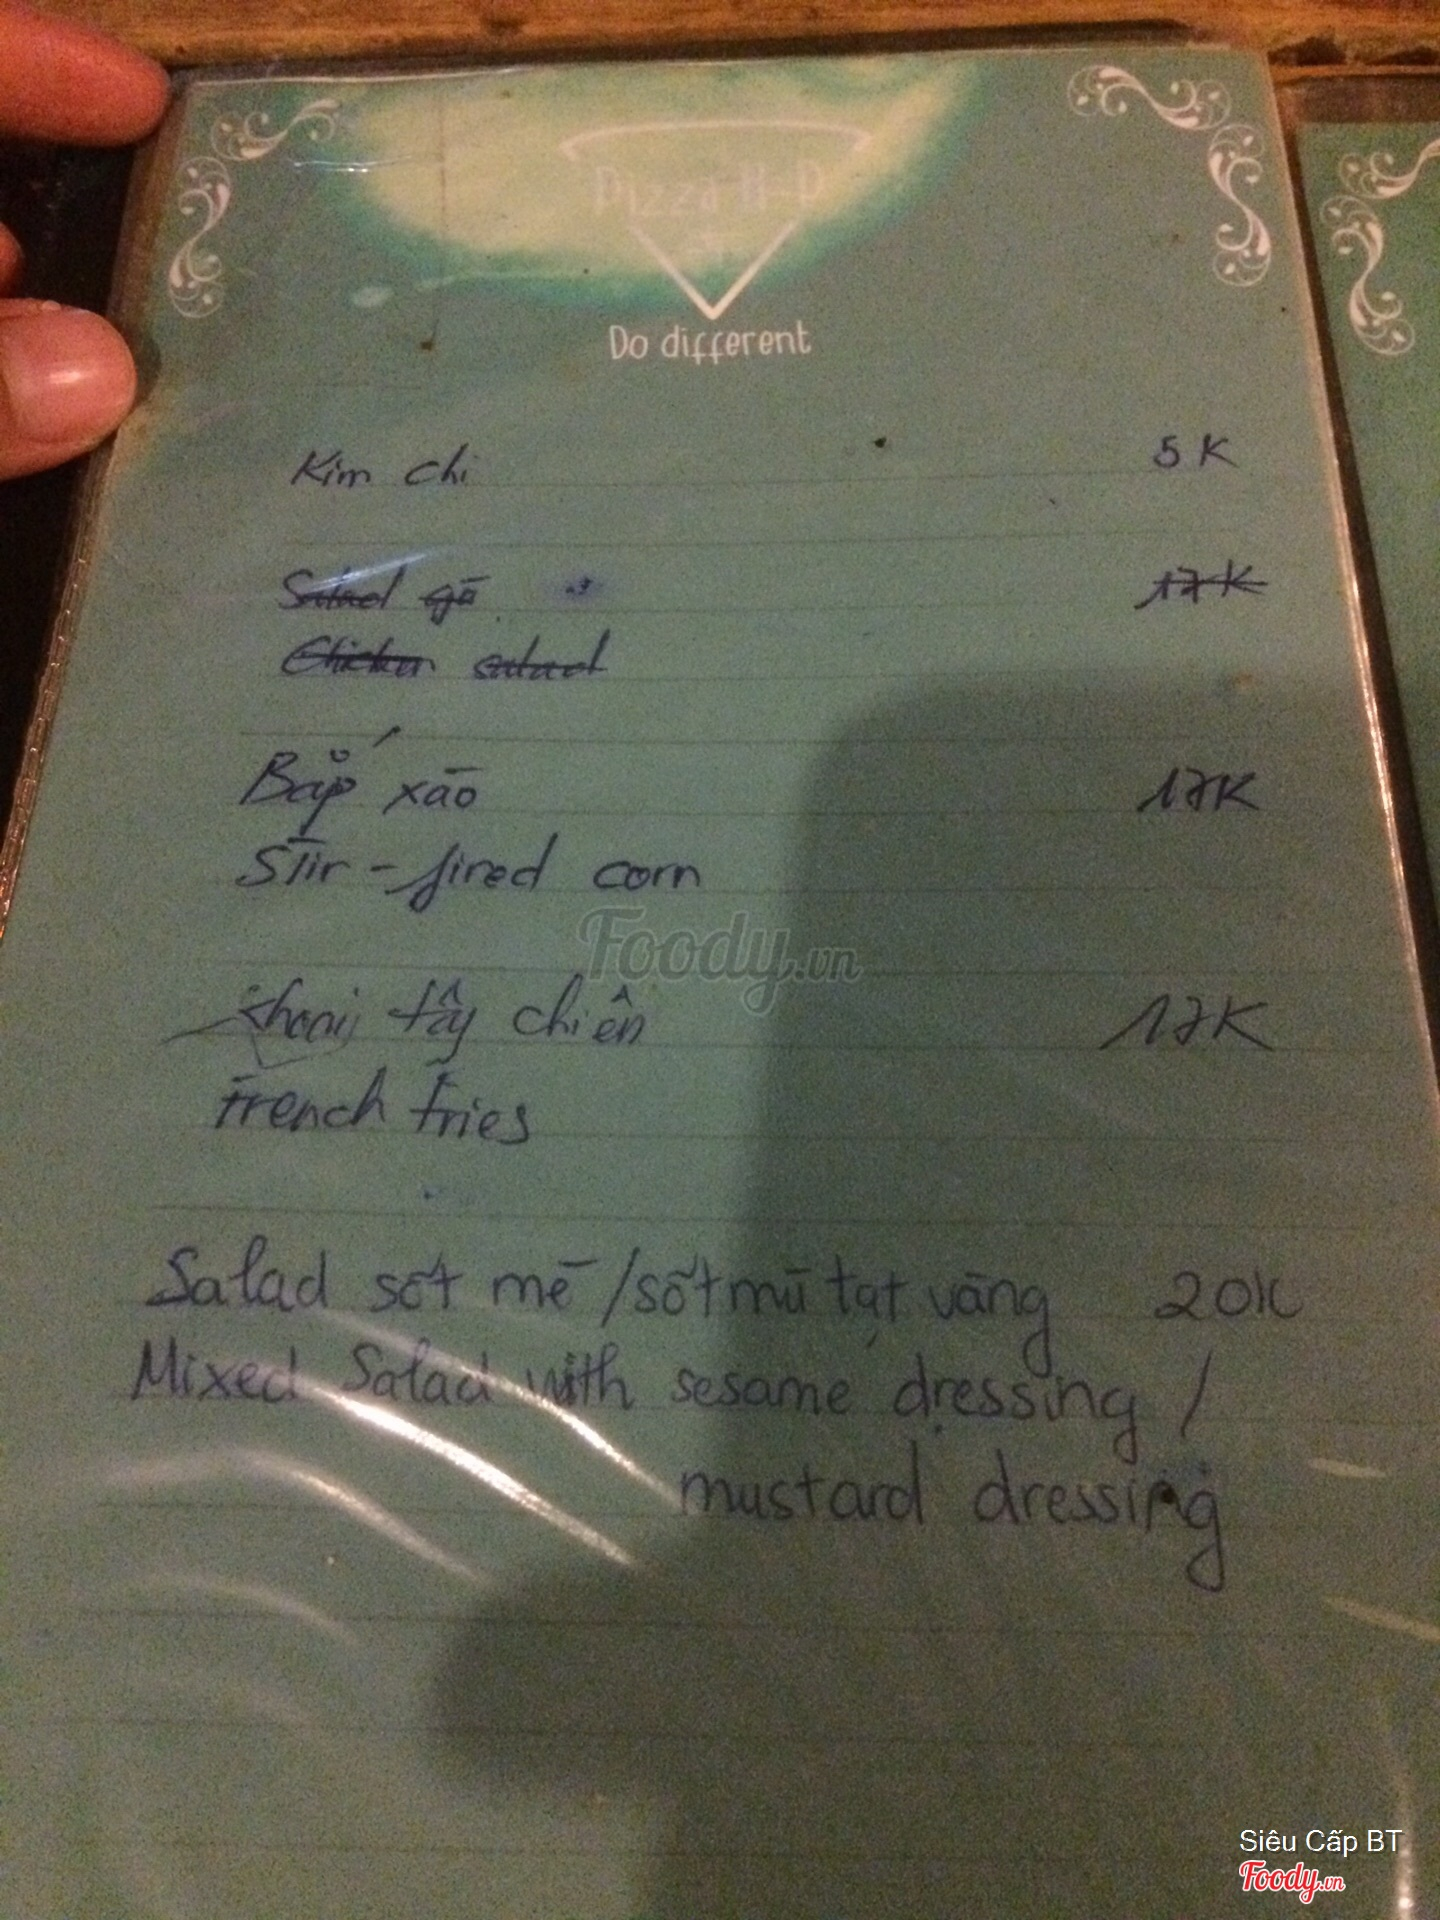 Pizza H-D
Do different
Kim chi 5K
Salad gà 17K
Chicken salad
Bắp xào 17K
Stir-fired corn
Khoai tây chiên 17K
French fries
Salad sốt mè / sốt mù tạt vàng 20K
Mixed Salad with sesame dressing /
mustard dressing
Foody.vn
Siêu Cấp BT
Foody.vn